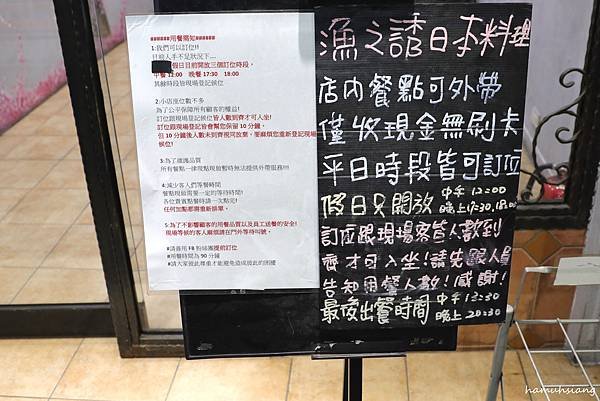 ######用餐需知######
1:我們可以訂位!!
目前人手不足狀況下....
假日目前開放三個訂位時段，
中餐12:00 晚餐17:30 18:00
其餘時段皆現場登記候位
2:小店座位數不多
為了公平保障所有顧客的權益!
訂位跟現場登記皆人數到齊才可入坐!
訂位跟現場登記皆會幫您保留10分鐘，
但10分鐘後人數未到齊視同放棄，要麻煩您重新登記現場
候位!
3:為了維護品質
所有餐點一律現點現做暫時無法提供外帶服務!!!!
4:減少客人們等餐時間
餐點現做需要一定的等待時間!
各位貴賓點餐時請一次點完!
任何加點都需重新排單。
5:為了不影響顧客的用餐品質以及員工送餐的安全!
現場等候的客人麻煩請在門外等待叫號。
#請善用FB粉絲團提前訂位
#用餐時間為90分鐘
#請大家彼此尊重才能避免造成彼此的困擾
漁之誘日本料理
店內餐點可外帶
僅收現金無刷卡
平日時段皆可訂位
假日只開放 中午12:00
晚上17:30.18:00
訂位跟現場客皆人數到
齊才可入坐!請先跟人員
告知用餐人數!感謝!
最後出餐時間 中午13:30
晚上20:30
hamuhsiang